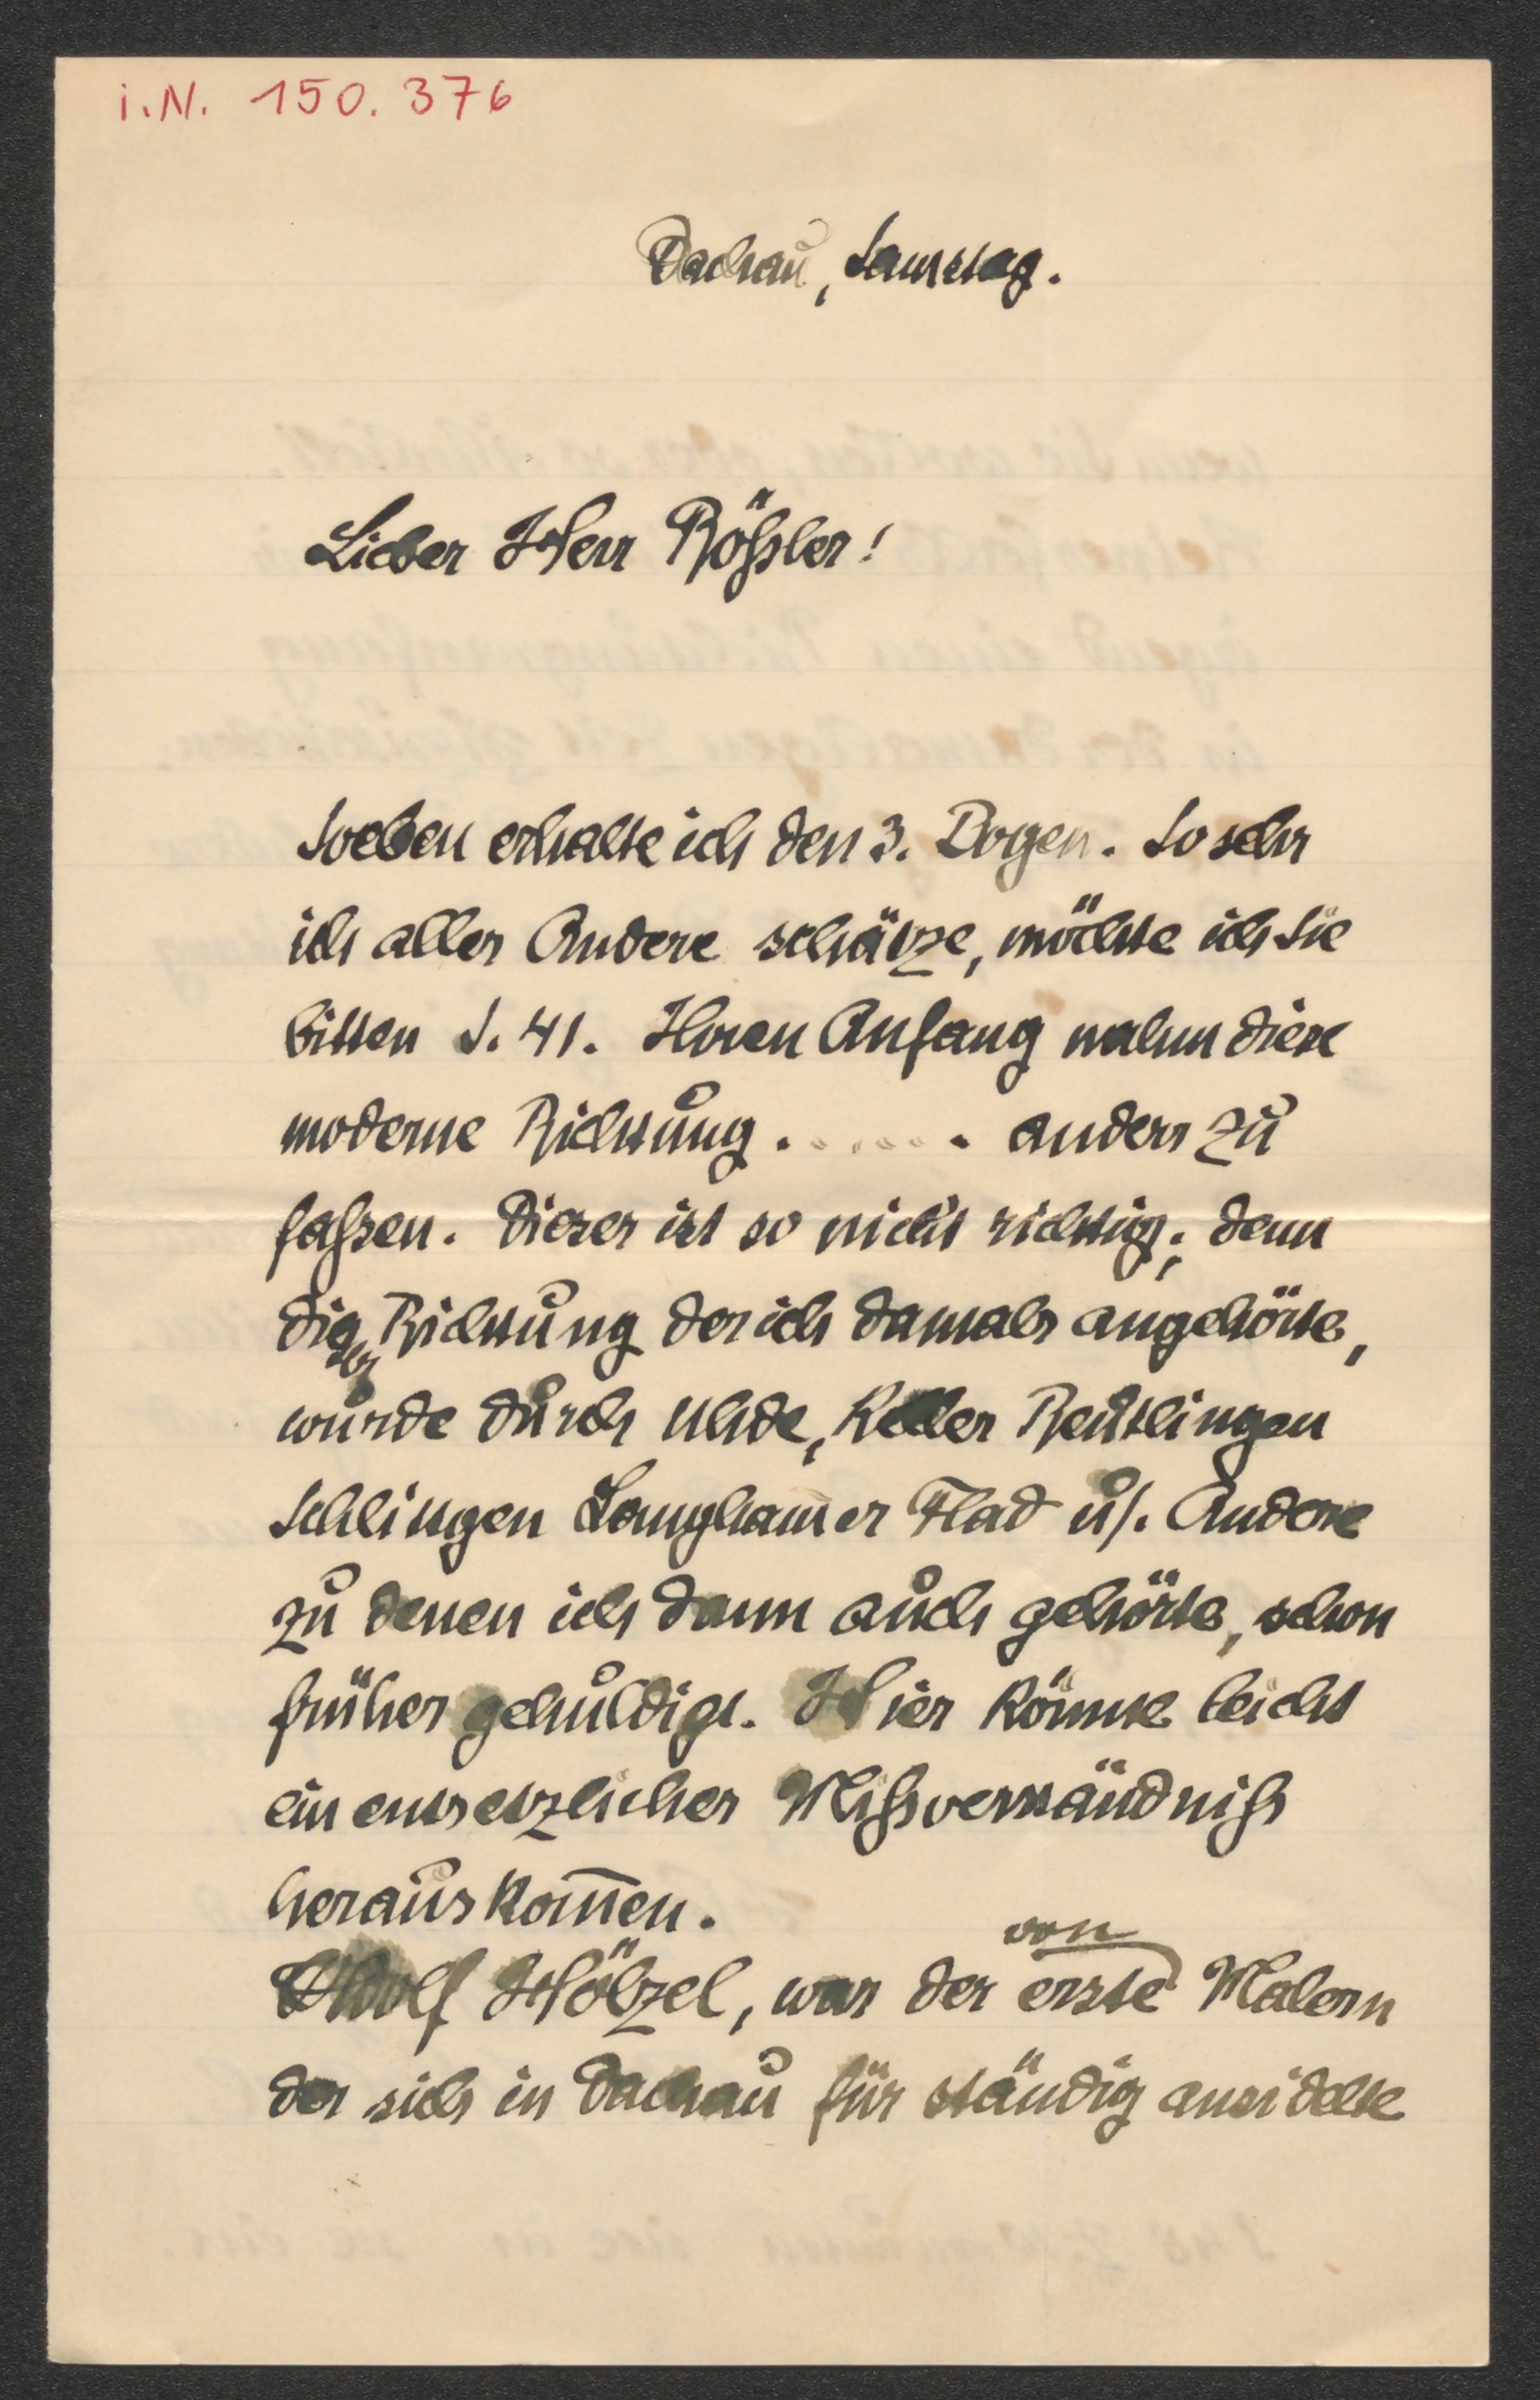 i.N. 150.376
Dachau, Samstag.
Lieber Herr Rößler!
Soeben erhalte ich den 3. Bogen. So sehr
ich alles Andere schätze, möchte ich Sie
bitten S. 41. Ihren Anfang nahm diese
moderne Richtung . . . . . . anders zu
faßen. Dieses ist so nicht richtig; denn
dieser Richtung der ich damals angehörte,
wurde durch Uhde, Keller Reutlingen
Schlittgen Langham̄er Flad u/. Andere
zu denen ich dann auch gehörte, schon
früher gehuldigt. Hier könnte leicht
ein entsetzliches Mißverständniß
herauskom̄en.
von
Adolf Hölzel, war der erste Malern
der sich in Dachau für ständig ansidelte